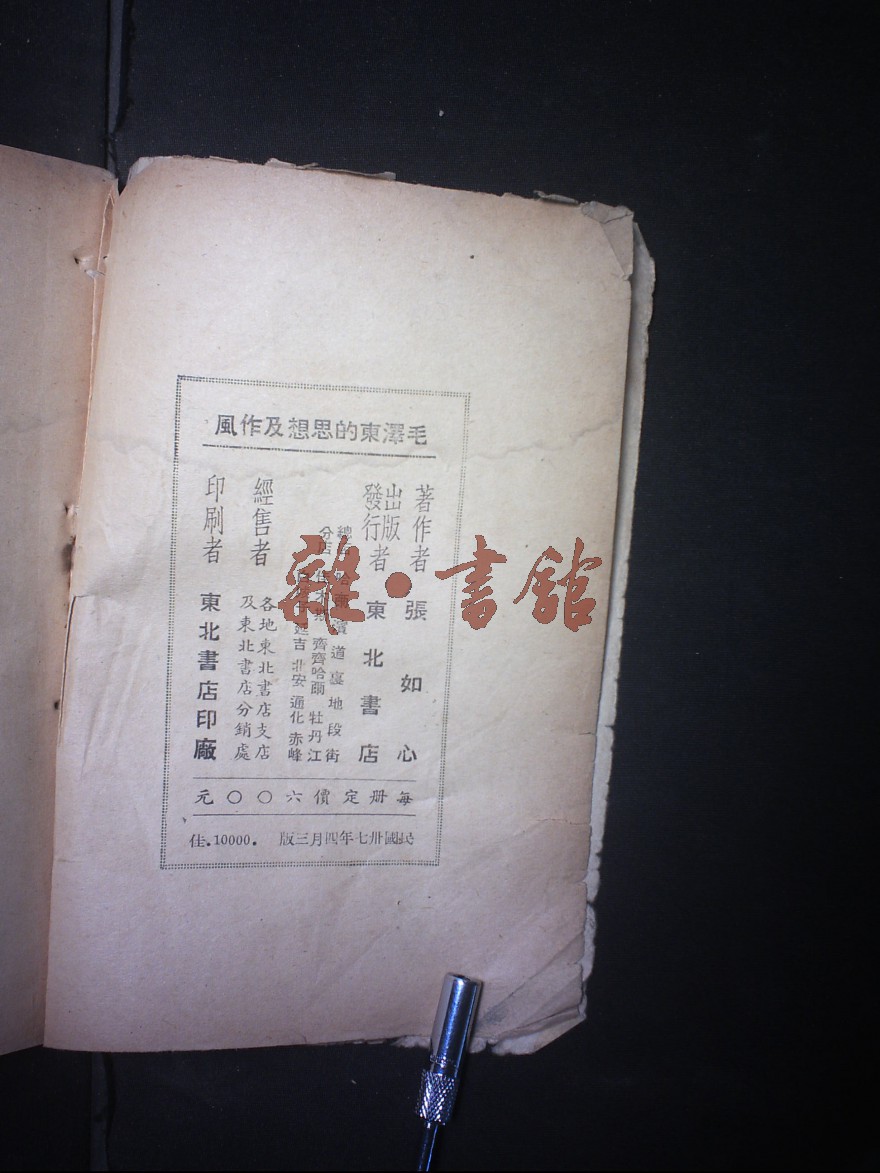 毛澤東的思想及作風
著作者 張如心
出版
發行者 東北書店
總店 哈爾濱道裏地段街
分店 佳木斯 齊齊哈爾 牡丹江
延吉 北安 通化 赤峰
經售者 各地東北書店支店
及東北書店分銷處
印刷者 東北書店印廠
每册定價六〇〇元
民國卅七年四月三版 10000. 佳.
雜·書館